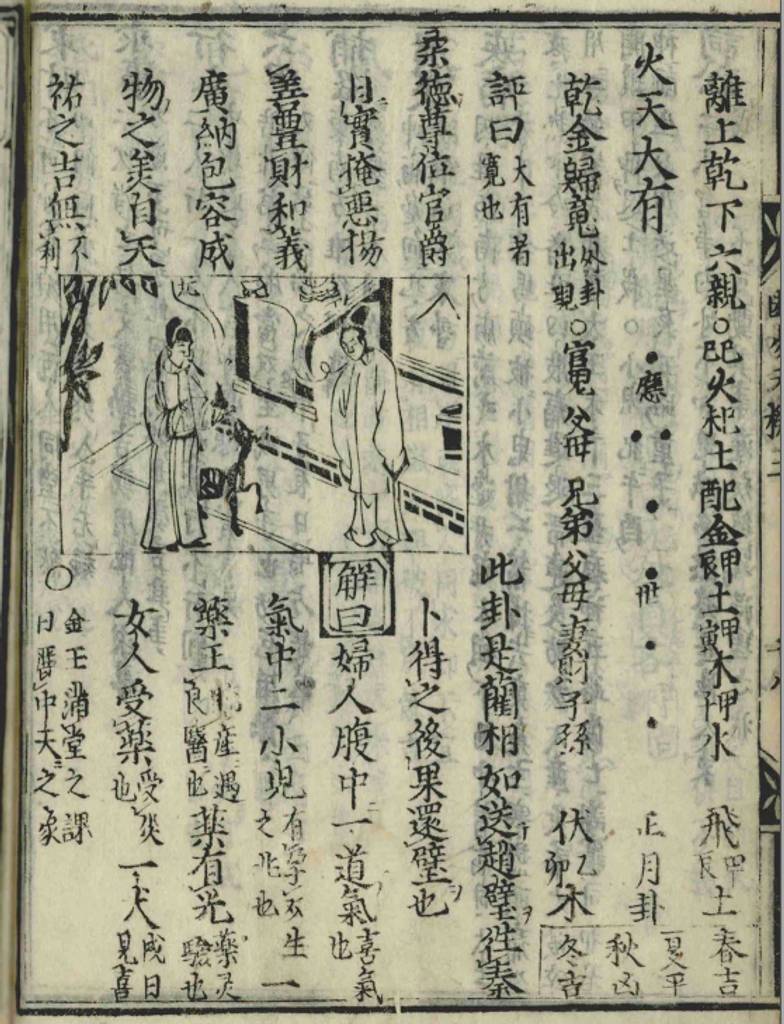 離上乾下六親○己巳火 己未土 己酉金 甲辰土 甲寅木 甲子水 飛甲辰土 春吉
火天大有 應 世 正月卦 夏平 秋凶
乾金歸䰟外卦出現○官鬼 父母 兄弟 父母 妻財 子孫 伏乙卯木 冬吉
評曰大有者寬也
柔德尊位官爵
日實掩惡揚
善豐財和義
廣納包容成
物之美自天
祐之吉無不利
此卦是藺相如送趙璧徃秦
卜得之後果還璧也
解曰婦人腹中一道氣喜氣也
氣中二小兒有孕双生之兆也 一
藥王臨產遇良醫也藥有光藥灵驗也
女人受藥受災也一犬戌日見喜
○金玉滿堂之課日麗中天之象